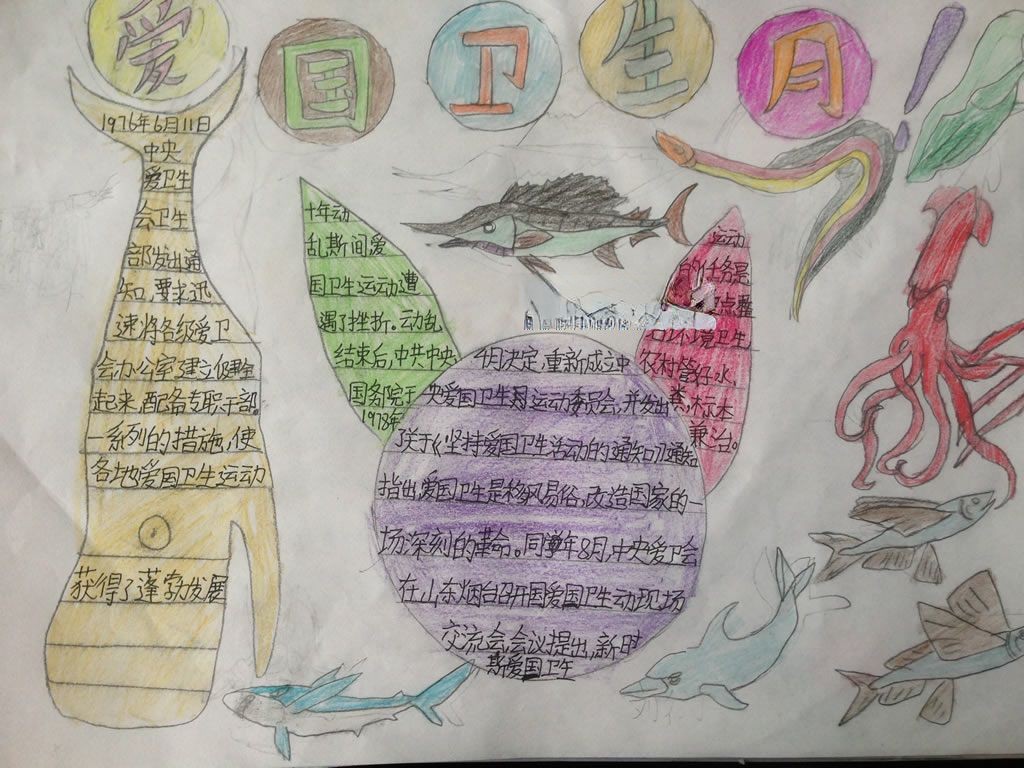 爱国卫生月！
1976年6月11日
中央
爱卫生
会卫生
部发出通
知，要求迅
速将各级爱卫
会办公室建立健全
起来，配备专职干部。
一系列的措施，使
各地爱国卫生运动
获得了蓬勃发展
十年动
乱斯间爱
国卫生运动遭
遇了挫折。动乱
结束后，中共中央
国务院于
1978年
4月决定，重新成立中
央爱国卫生运动委员会，并发出
了关于《坚持爱国卫生活动的通知》通知
指出，爱国卫生是移风易俗，改造国家的一
场深刻的革命。同年8月，中央爱卫会
在山东烟台召开国爱国卫生动现场
交流会，会议提出，新时
斯爱国卫生
运动
的任务是
点整
环境卫生
农村管好水、
粪，标本
兼治。